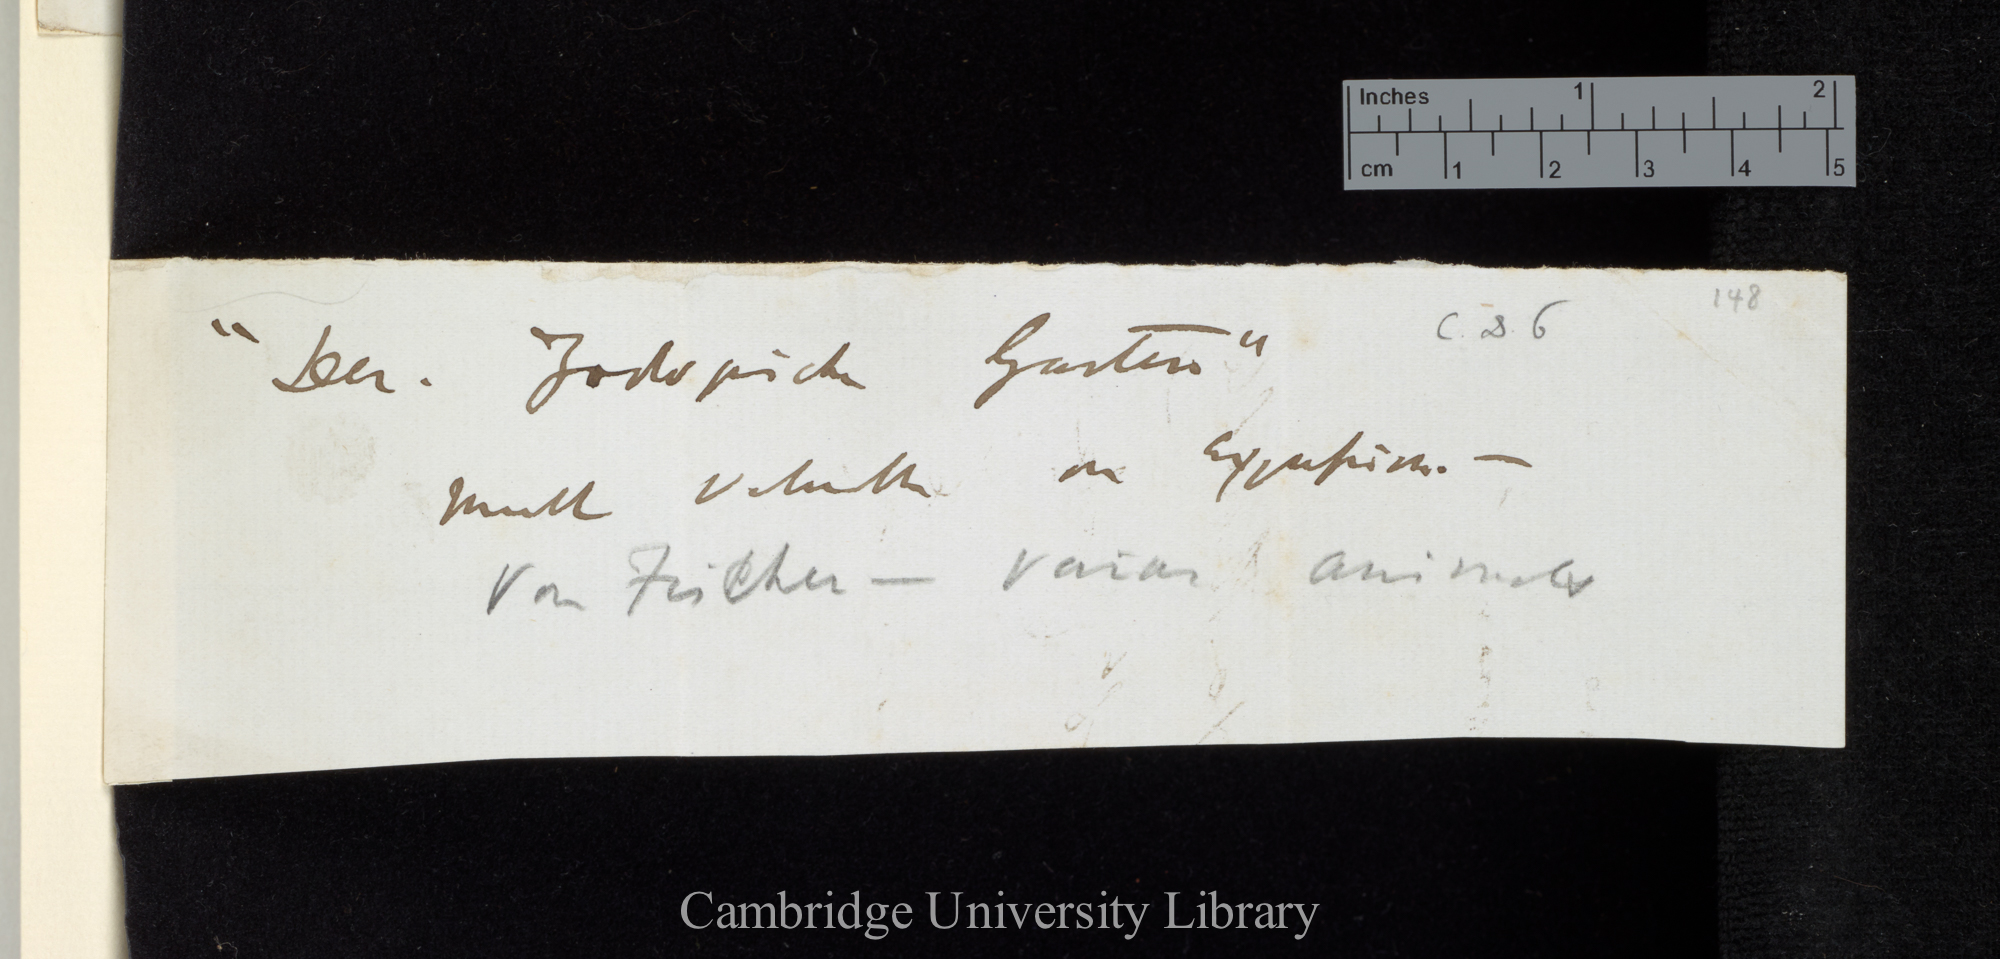 Inches 1 2
cm 1 2 3 4 5
148
C. D. 6
"Der. Zoologische Garten"
much valuable on Expression. —
Von Fischer — various animals
Cambridge University Library